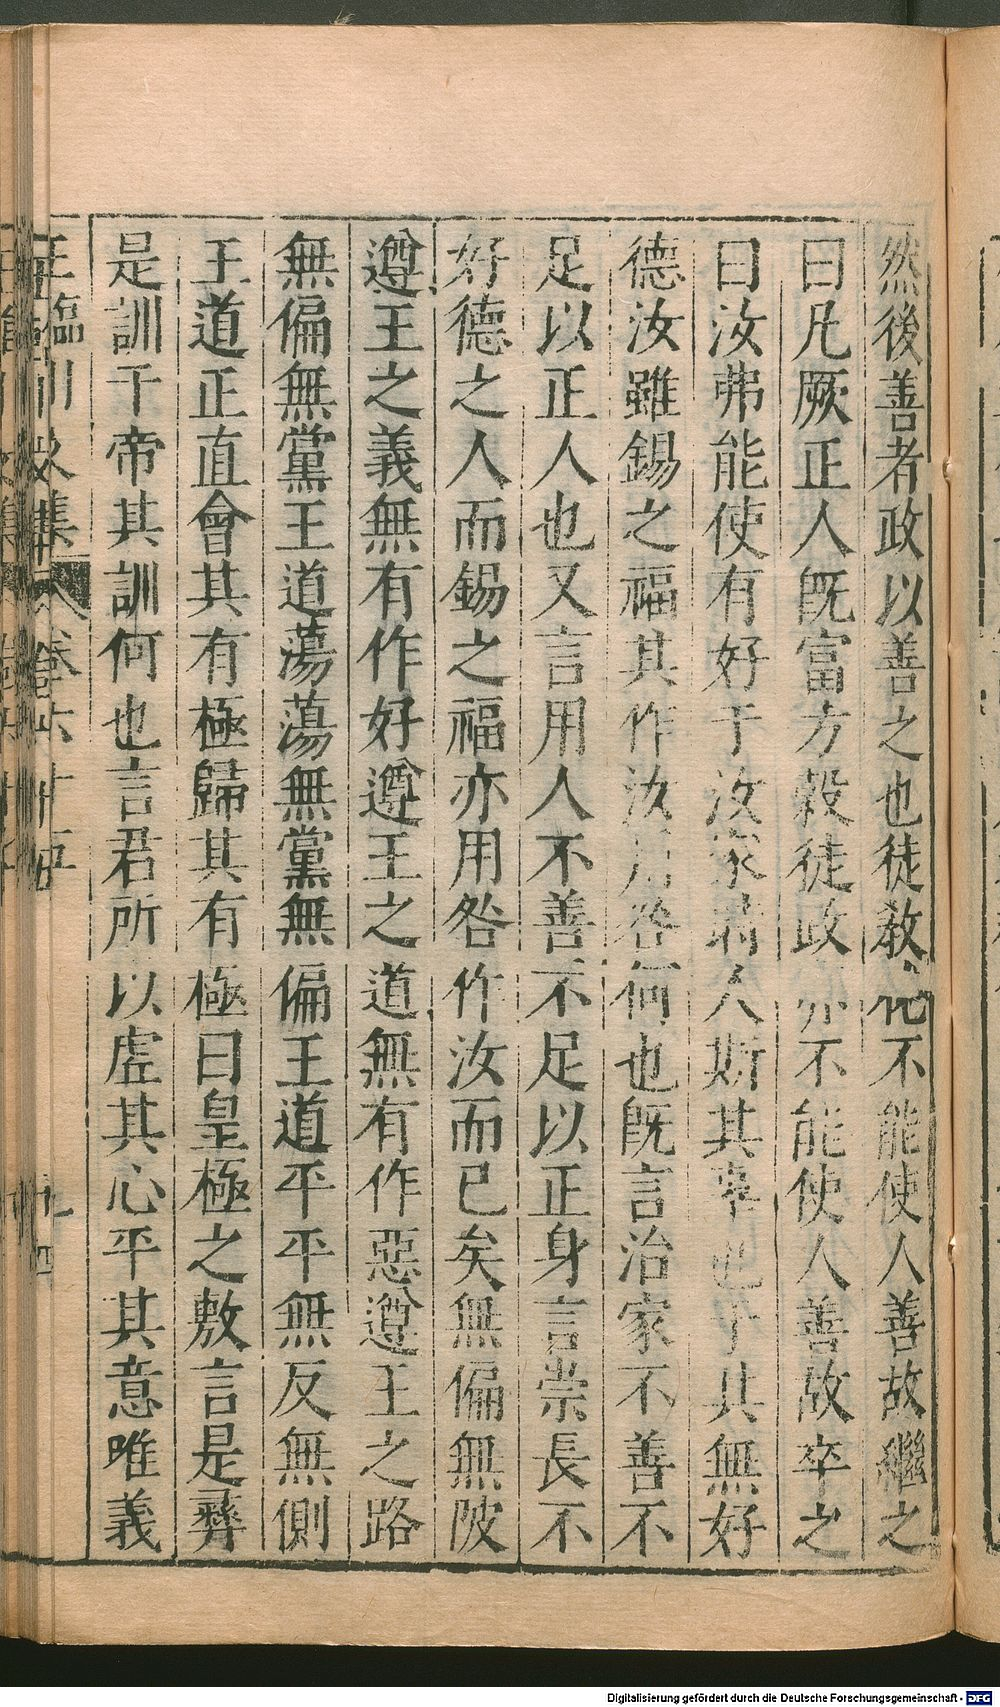 然後善者政以善之也徒教化不能使人善故繼之
曰凡厥正人既富方穀徒政亦不能使人善故卒之
曰汝弗能使有好于汝家時人斯其辜也于其無好
德汝雖錫之福其作汝用咎何也既言治家不善不
足以正人也又言用人不善不足以正身言崇長不
好德之人而錫之福亦用咎作汝而已矣無偏無陂
遵王之義無有作好遵王之道無有作惡遵王之路
無偏無黨王道蕩蕩無黨無偏王道平平無反無側
王道正直會其有極歸其有極曰皇極之敷言是彞
是訓于帝其訓何也言君所以虛其心平其意唯義
王臨川文集
卷六十五
Digitalisierung gefördert durch die Deutsche Forschungsgemeinschaft - DFG